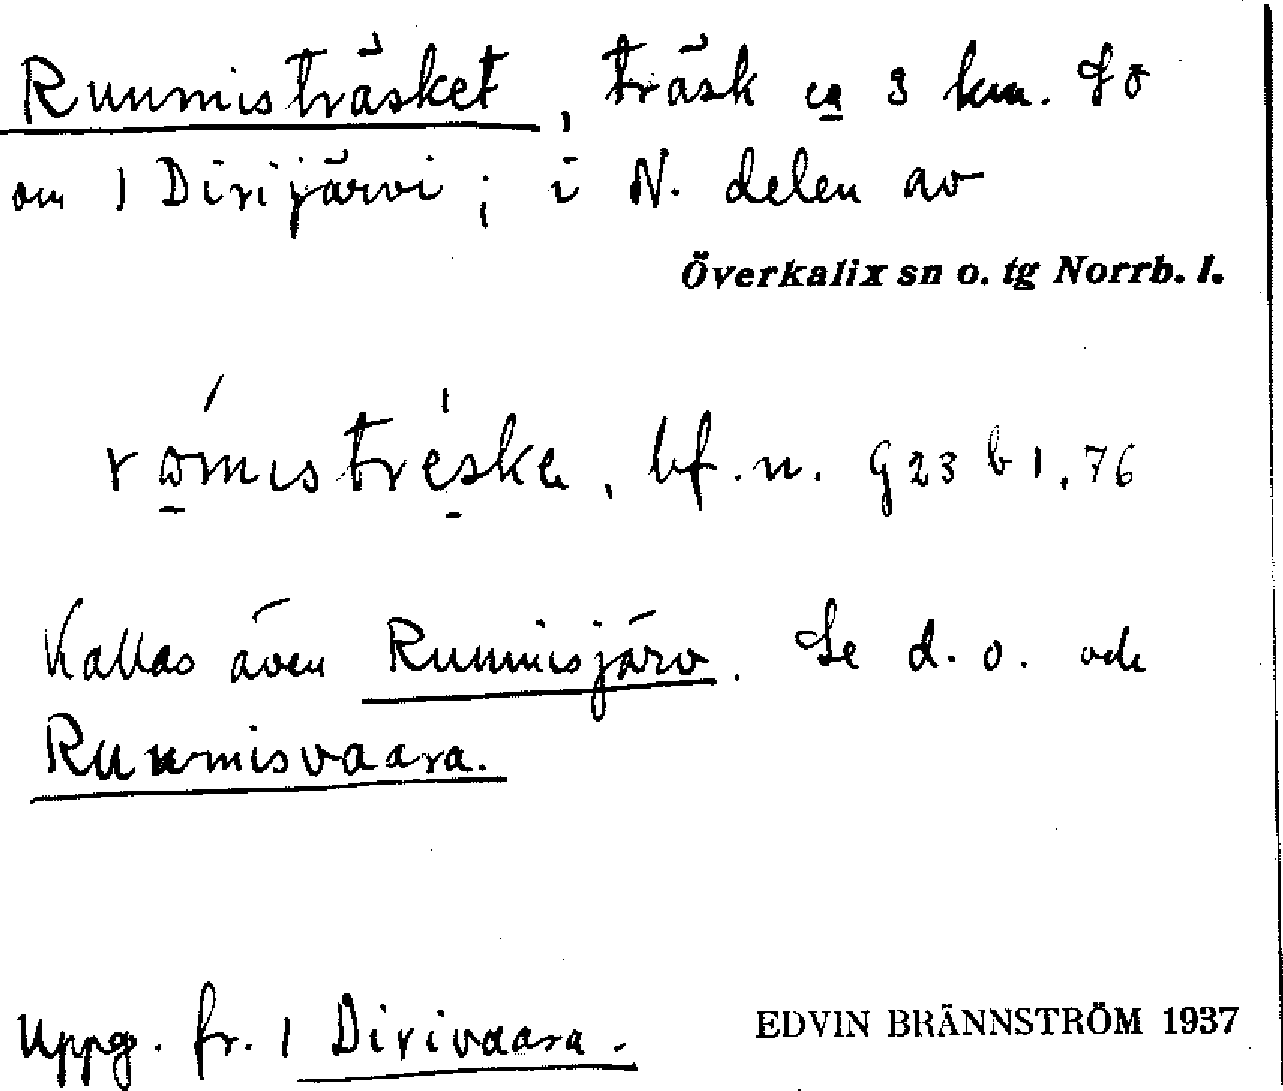 Rummisträsket, träsk ca 3 km. SO
om 1 Dirijärvi; i N. delen av
Överkalix sn o. tg Norrb. l.
bf. n. g23 b1, 76
Kallas även Rummisjärv. Se d. o. och
Rummisvaara.
Uppg. fr. 1 Dirivaara.
EDVIN BRÄNNSTRÖM 1937